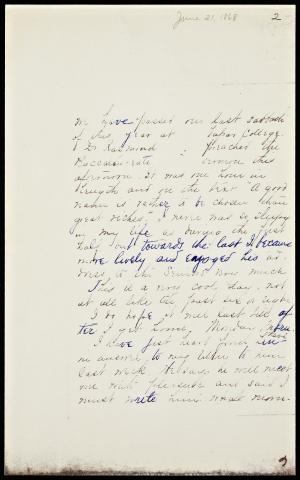 June 21, 1868
2
We have passed our last sabbath
of this year at Tabor College.
Dr Raymond preaches the
Baccalau-rate sermon this
afternoon. It was one hour in
length and on the text "A good
name is rather to be chosen than
great riches." I never was so sleepy
in my life as during the first
half but towards the last I became
more lively and enjoyed his
to the Seniors very much
This is a very cool day, not
at all like the past
I do hope it will last till af-
ter I get home,
I have just heard from
in answer to my letter to him
last week. He says he will meet
me with pleasure and said I
must write him what morn-